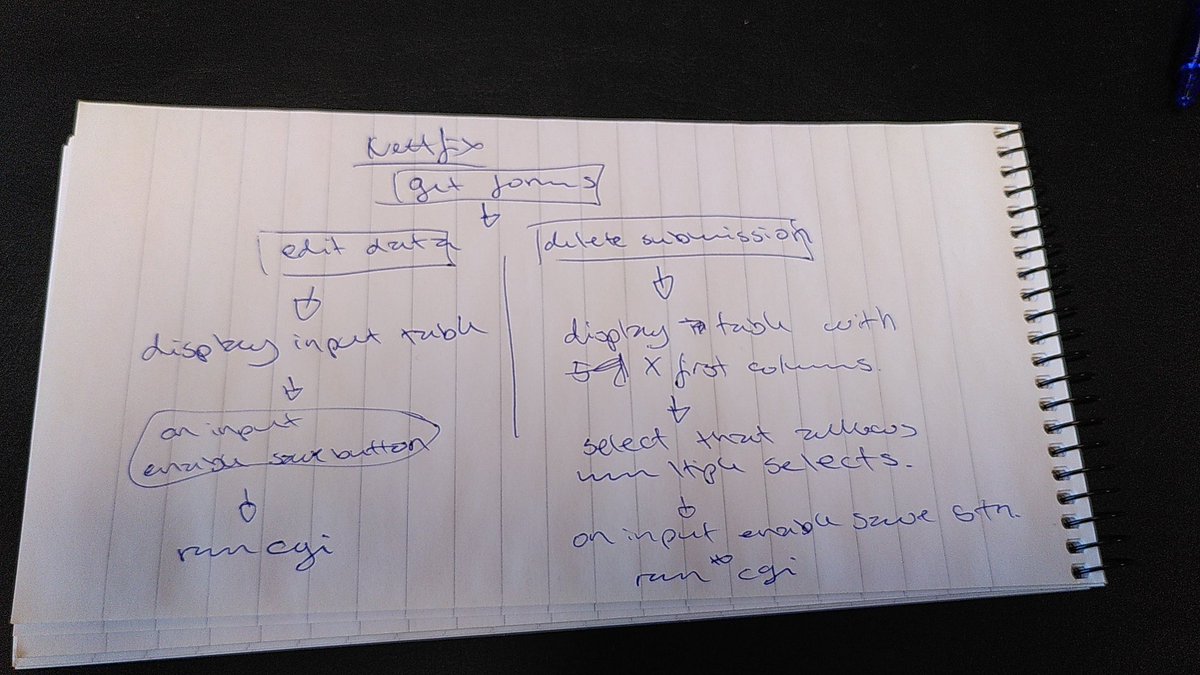 Nettfix
get forms
edit data
display input table
on input
enable save button
run cgi
delete submission
display table with
X first columns.
select that allows
multiple selects.
on input enable save btn.
run cgi